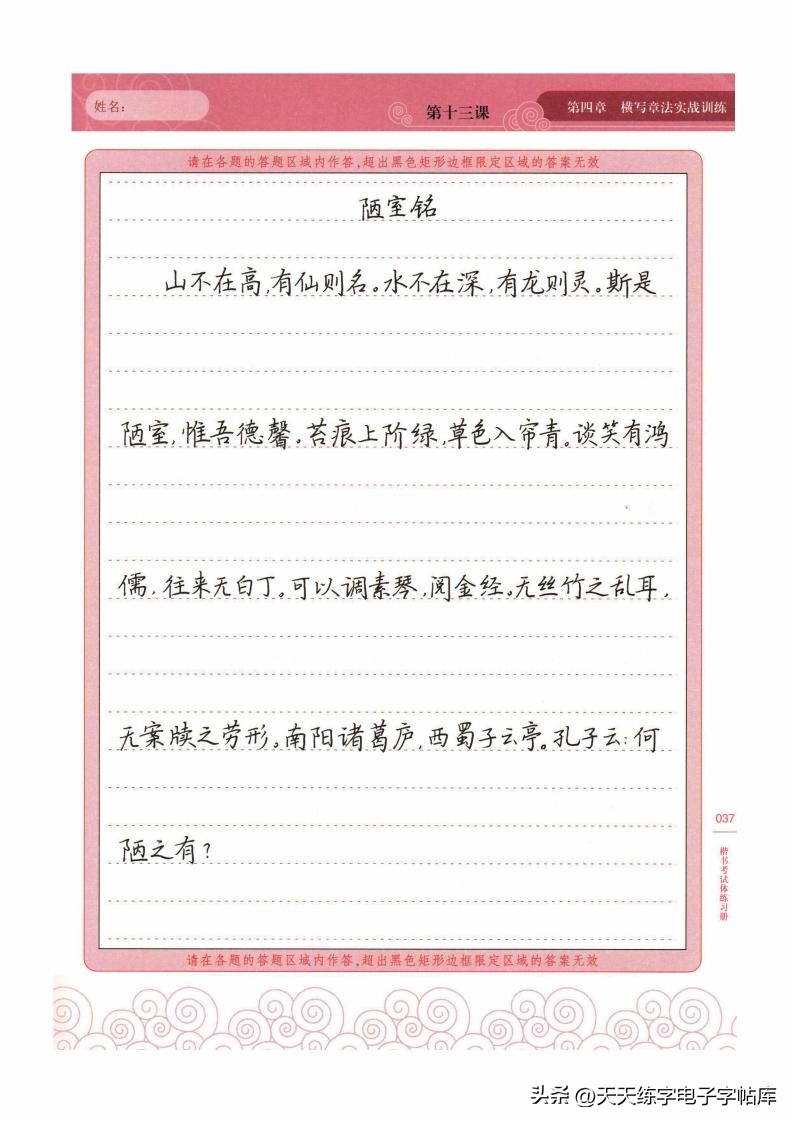 姓名：
第十三课
第四章 横写章法实战训练
请在各题的答题区域内作答,超出黑色矩形边框限定区域的答案无效
陋室铭
山不在高,有仙则名。水不在深,有龙则灵。斯是
陋室,惟吾德馨。苔痕上阶绿,草色入帘青。谈笑有鸿
儒,往来无白丁。可以调素琴,阅金经。无丝竹之乱耳,
无案牍之劳形。南阳诸葛庐,西蜀子云亭。孔子云:何
陋之有?
037
楷书考试体练习册
请在各题的答题区域内作答,超出黑色矩形边框限定区域的答案无效
头条 @天天练字电子字帖库